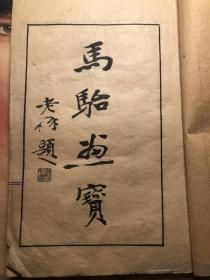 馬駘畫寶
老䄂題